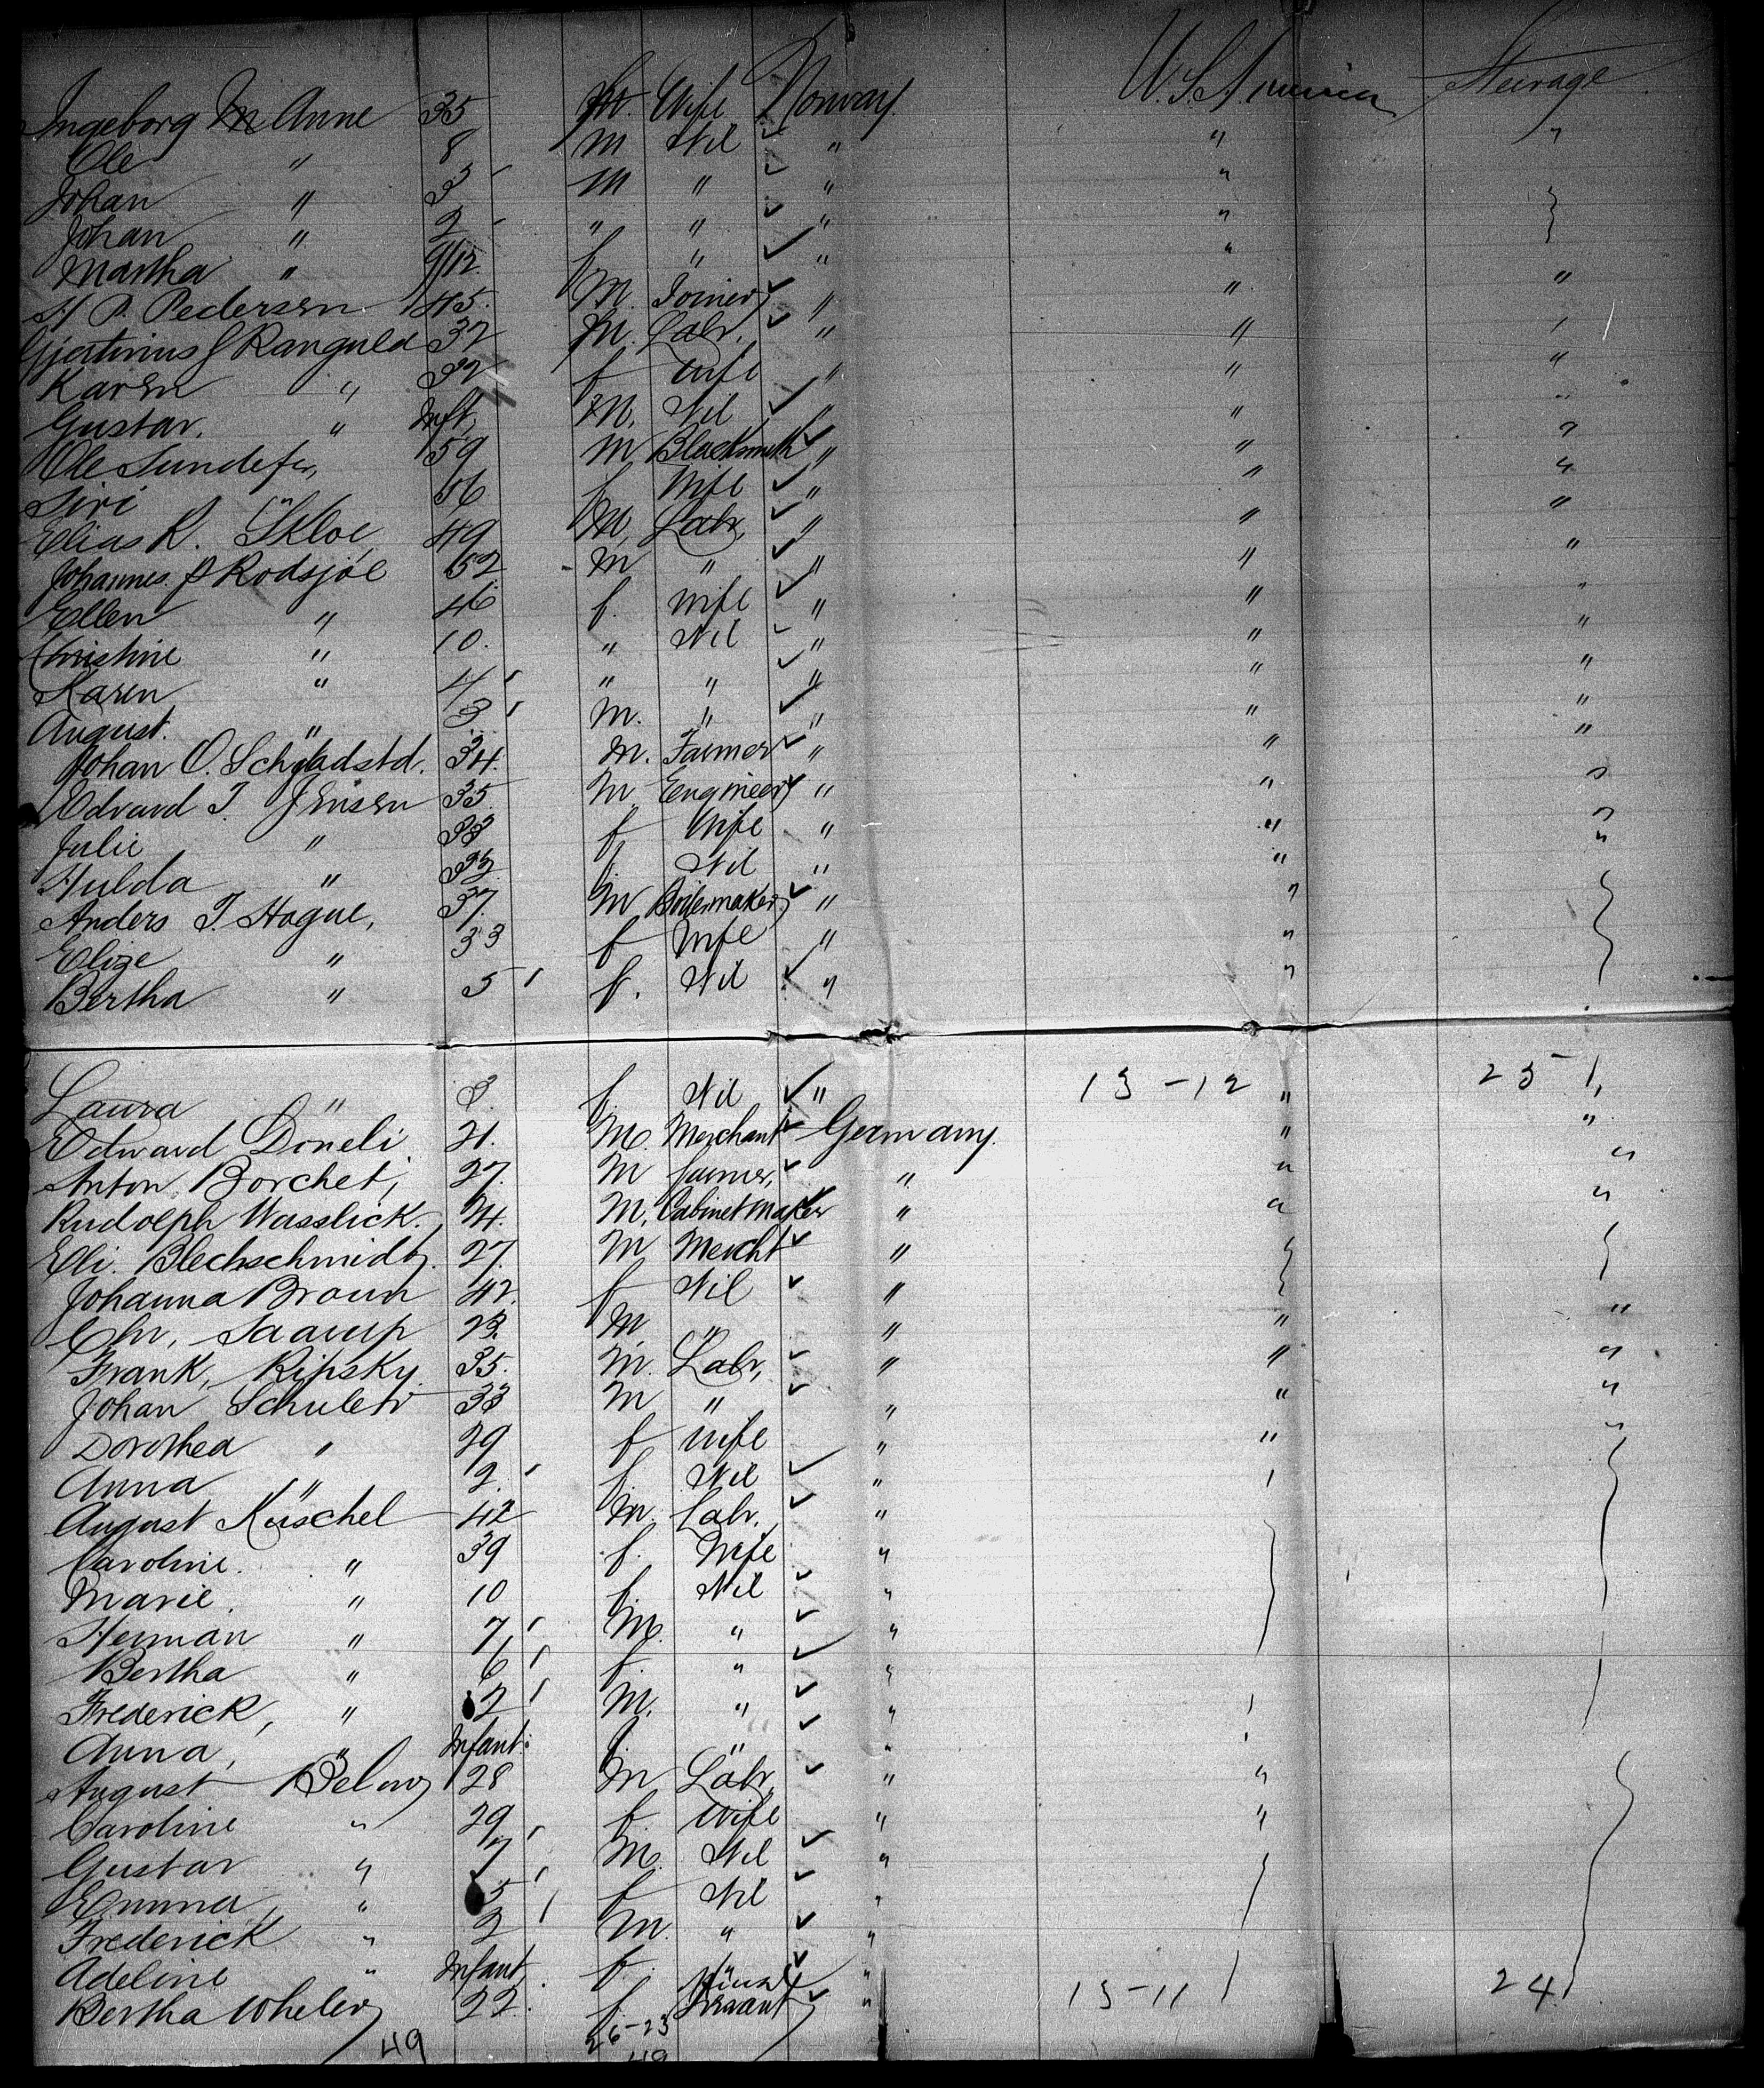 Ingeborg M Anne 35 f. Wife Norway. U.S. America Steerage
Ole " 8 M Nil " " "
Johan " 3 M " " "
Johan " 2 " " " "
Martha " 9/12 f " " "
H P. Pedersen 45. M. Joiner " " "
32 M. Labr. " " "
Karen " 32 f Wife " " "
Gustav. " Inft, M. Nil " " "
Ole 59 M Blacksmith " " "
Siri 56 f Wife " " "
Elias K. Skloe 49 M, Labr, " " "
Johannes P Rodsjöe 52 M " " " "
Ellen " 46 f. Wife " " "
Christine " 10. " Nil " " "
Karen " 4 " " " " "
August. " 3 M. " " " "
Johan O. 34. M. Farmer " " "
Edvard T. Jensen 35. M Eengineer " " "
Julie " 33 f Wife " " "
Hulda " f. Nil " " "
Anders T. Hogue, 37. M Boilermaker " "
Elize " 33 f Wife " "
Bertha " 5 f. Nil " "
Laura " 8. f. Nil " 13-12 " 25
Edward Doneli. 21. M. Merchant Germany. " "
Anton Borchet, 27. M farmer, " " "
Rudolph Wasslick. 24. M. Cabinetmaker " " "
Eli. Blechschmidt 27. M Mercht "
Johanna Braun 42. f Nil "
Chr, Saarup 23. M, " " " "
Frank, Ripsky. 35. M. Labr, " " "
Johan Schuler 33 M " " " "
Dorothea " 29 f Wife " " "
Anna " 2. f. Nil "
August Küschel 42 M. Labr. "
Caroline. " 39 f. Wife "
Marie. " 10 f. Nil "
Herman " 7 M. " "
Bertha " 6 f. " "
Frederick, " 2 M. " "
Anna, " Infant. f. " "
August Belows 28 M Labr, " "
Caroline " 29 f. Wife " "
Gustav " 7 M. Nil "
Emma, " 5 f Nil "
Frederick " 2 M. " "
Adeline " Infant, f. " "
Bertha Wheler 22. f. Servant " 13-11 24
49 26-23
49